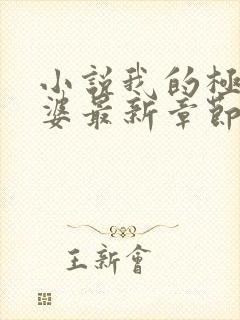 小説我的極
婆最新章節
王新會